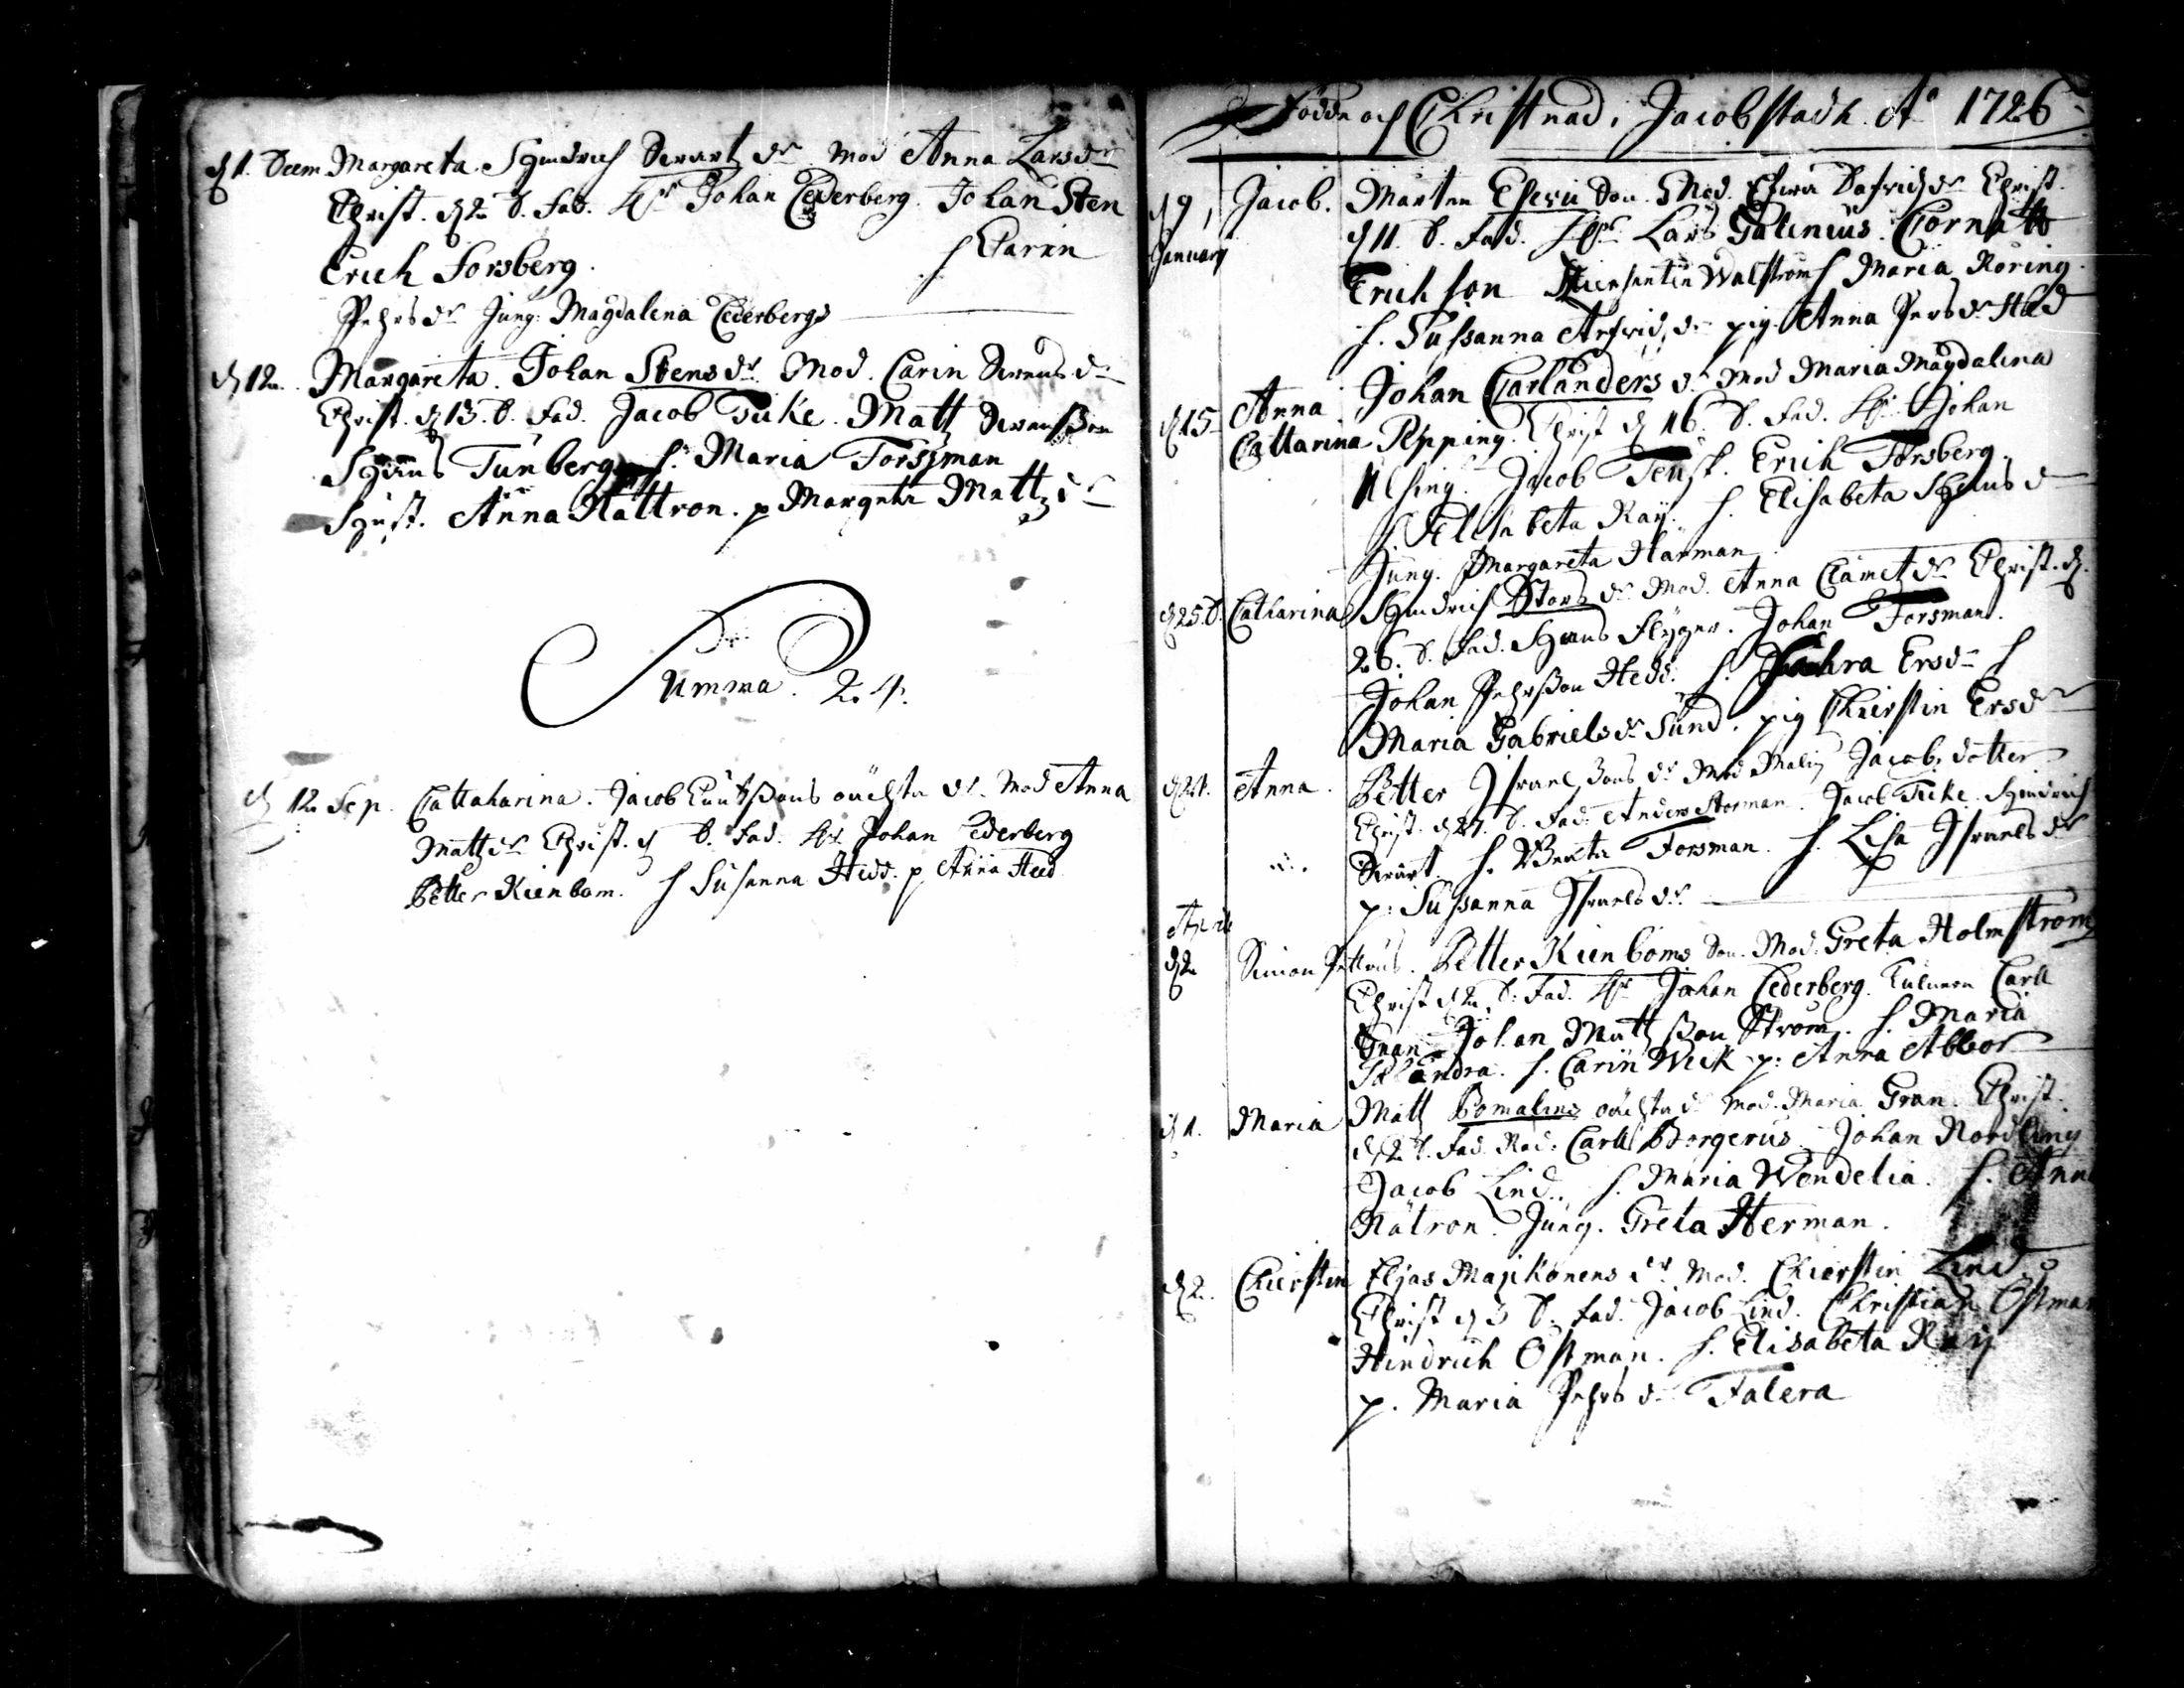 d 1. Decem Margareta. Hindrich Swartz dr. Mod Anna Larsdr
Christ. d 2 D. Fad. Hr Johan Cederberg. Johan Sten
Erich Forsberg. h Carin
Pehrsdr Jung. Magdalena Cederbergs
d 12. Margareta. Johan Stensdr. Mod. Carin Svensdr
Christ. d 13. D. Fad. Jacob Ticke. Matt
Hans Tunberg h. Maria Forssman
Hust. Anna Nattron. p Margeta Mattzdr
Summa. 24.
d 12 Sep. Cattaharina. Jacob dr. Mod Anna
Mattzdr Christ. d D. Fad. Hr Johan Cederberg
Petter Kienbom. h Susanna Hedd. p Anna Heed
Födde och Christnad i Jacobstadh Ao 1726
d 9 Jacob. Mårten Son. Mod. Christ.
January d 11. D. Fad. Lars Galenius.
Erichson Walström h Maria Röring
h. Sussanna pig. Anna Persdr Hed
d 15 Anna Johan Carlanders dr Mod Maria Magdalena
Cattarina Pepping. Christ d 16. D. Fad. Hr Johan
Jacob Erich Forsberg.
h Elisabeta Raij. h. Elisabeta Hansdr
Jung. Margareta Harman
d 25. D. Catharina Hindrich Stors dr Mod. Anna Christ. d.
26. D. Fad. Hans Flyger. Johan Forsman.
Johan Pehrsson Hedd. h. Ersdr h
Maria Gabrielsdr Sund. pig Chierstin Ersdr
Anna. Petter Israelssons dr Mod Malin Jacobsdotter
Christ. d 27. D. Fad. Anders Storman. Jacob Ticke. Hindrich
Swart. h. Forsman. h. Lisa Israelsdr
p: Sussanna Israelsdr
April
d 2 Simon Petrus. Petter Kienboms Son. Mod. Greta Holmström
Christ d 2 D. Fad. Hr Johan Cederberg. Carll
Gran Johan Mattsson Ström. h. Maria
h. Carin Wick p: Anna Abbor
d 1. Maria Matt Bomalins dr Mod. Maria Gran. Christ.
d 2 D. Fad. Råd. Carll Borgerus. Johan Nordling
Jacob Lind. h. Maria Wendelia. h. Anna
Nätron. Jung. Greta Herman.
d 2. Chierstin Eljas Majkonens dr Mod. Chierstin Lind
Christ d 3 D. Fad. Jacob Lind. Christian Östman
Hindrich Östman. h. Elisabeta Raij
p. Maria Pehrsdr Falera